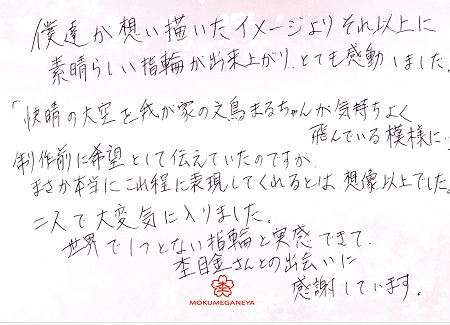 僕達が想い描いたイメージよりそれ以上に
素晴らしい指輪が出来上がり、とても感動しました。
「快晴の大空を我が家の文鳥まるちゃんが気持ちよく
飛んでいる模様に…
制作前に希望として伝えていたのですが、
まさか本当にこれ程に表現してくれるとは想像以上でした。
二人で大変気に入りました。
世界で1つとない指輪と実感できて、
杢目金さんとの出会いに
感謝しています。
MOKUMEGANEYA